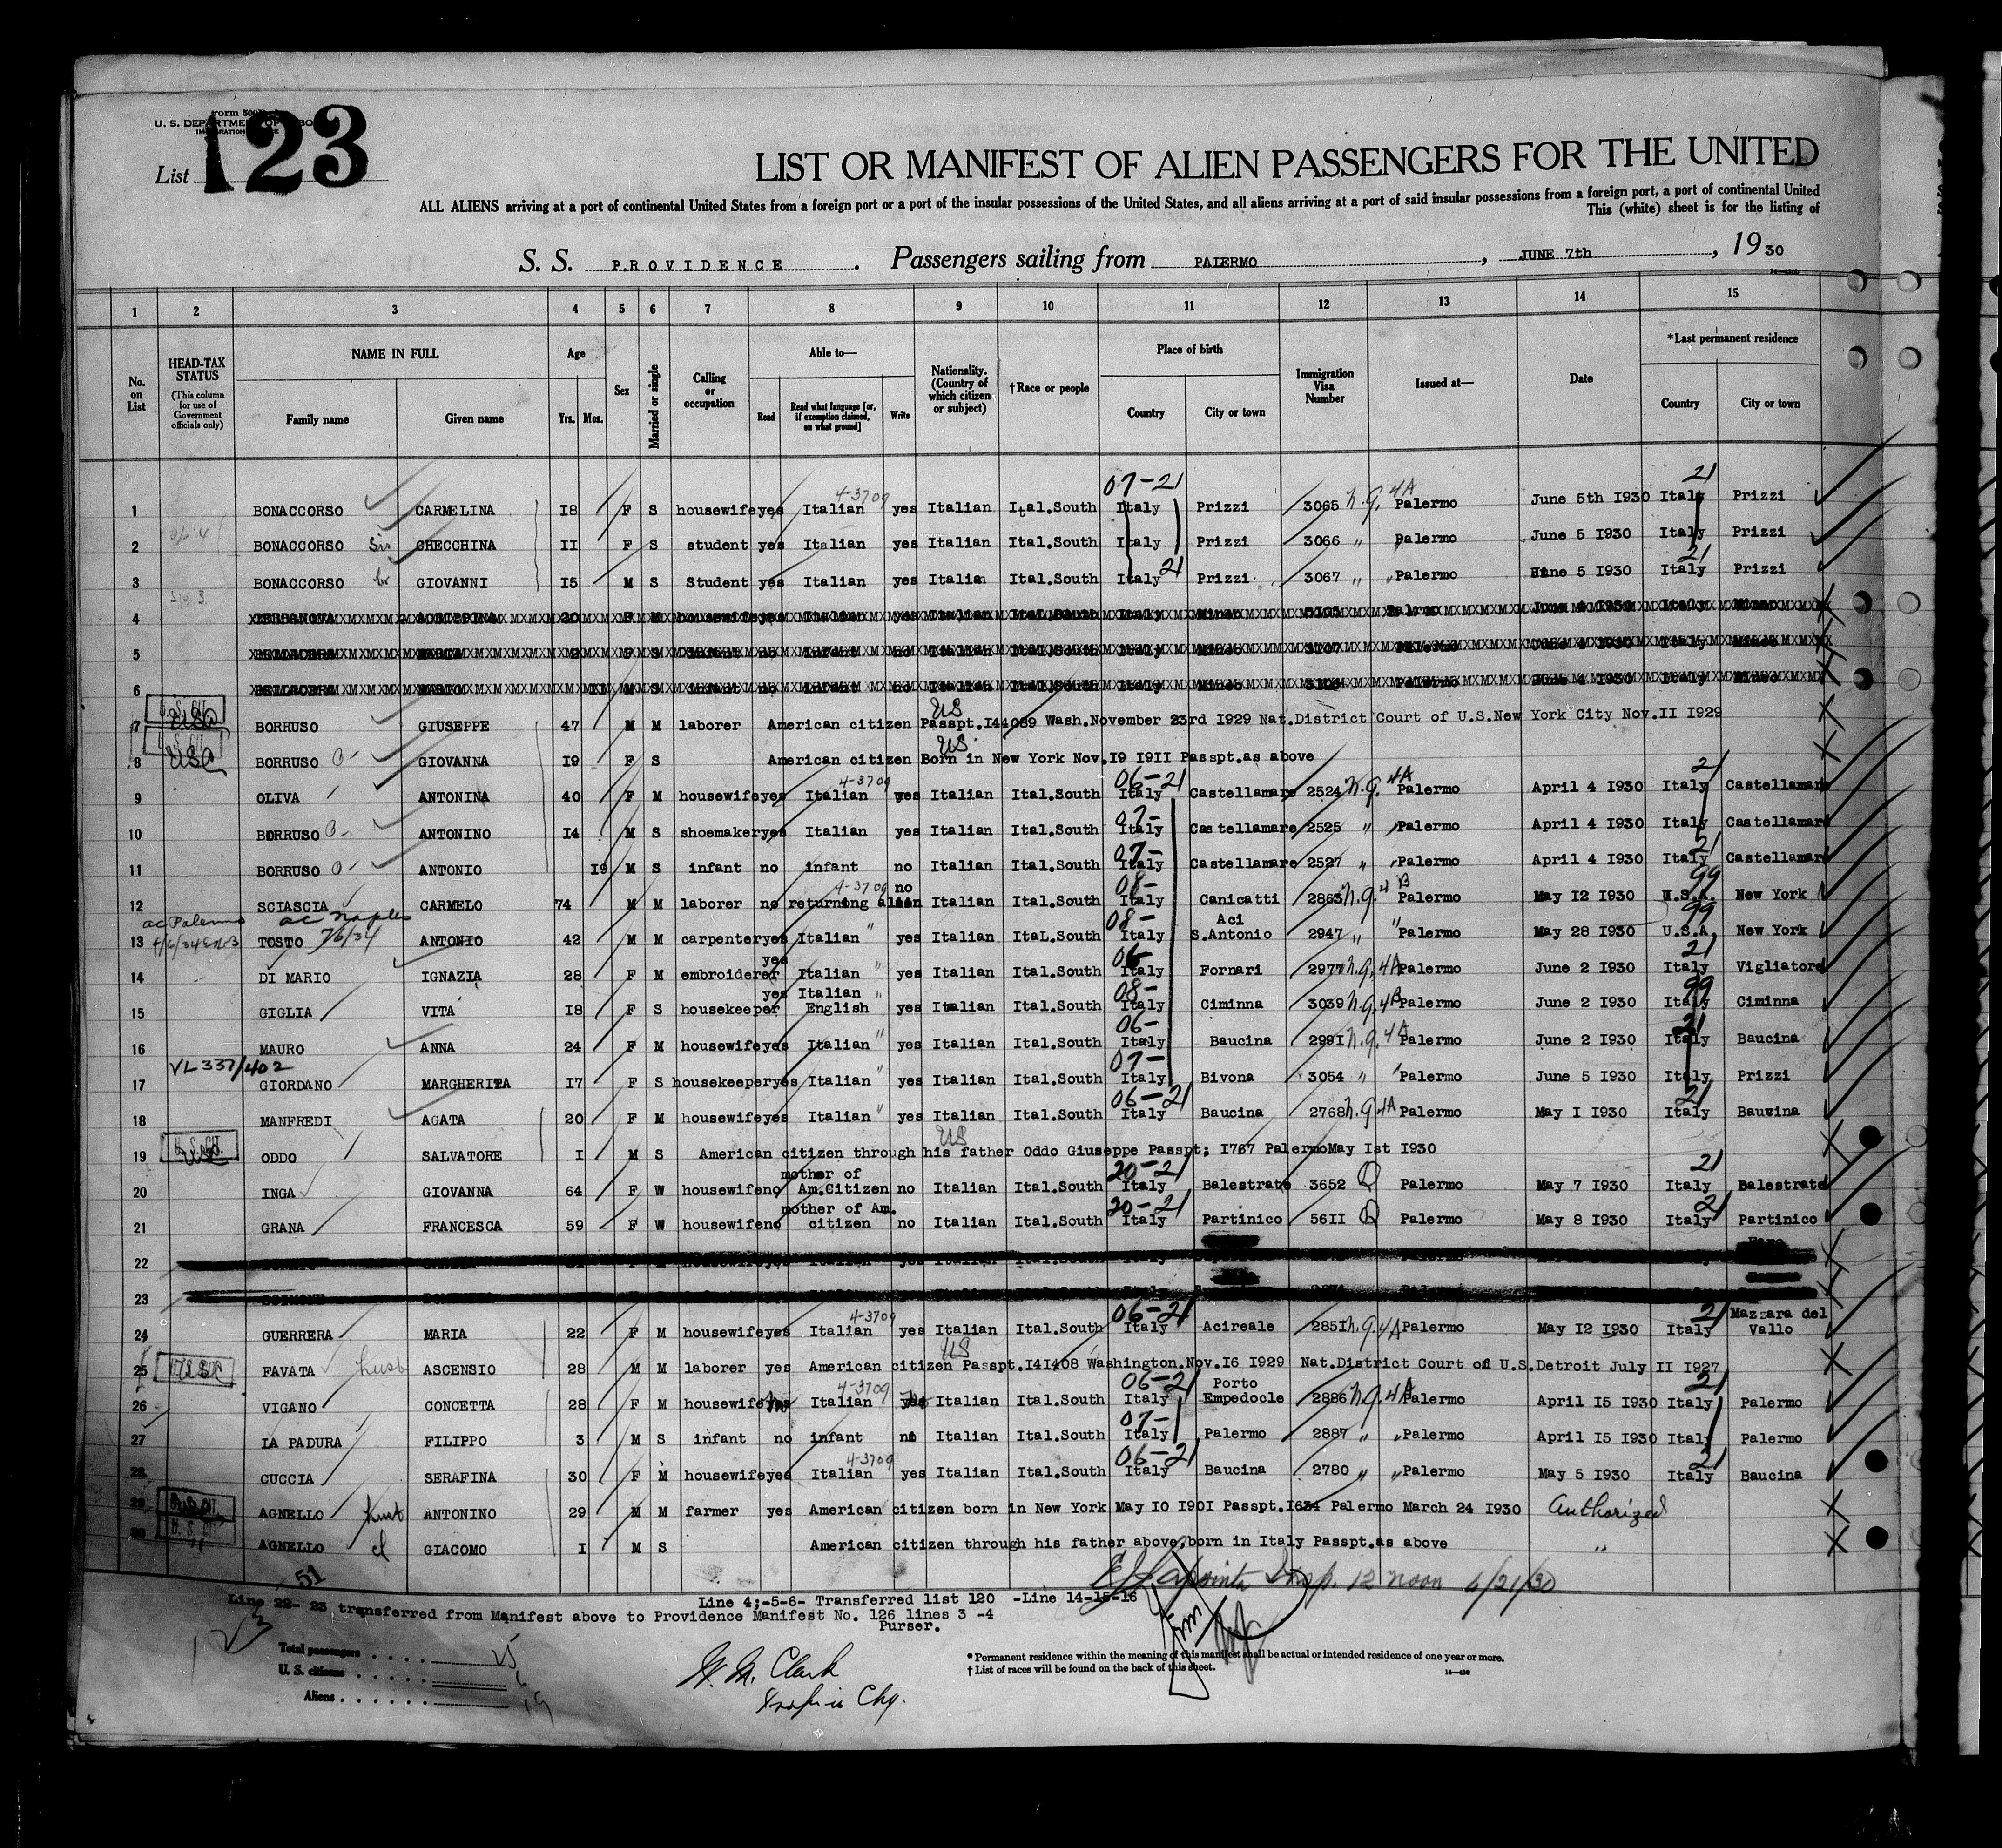 Form 500
U. S. DEPARTMENT OF LABOR
List 123
LIST OR MANIFEST OF ALIEN PASSENGERS FOR THE UNITED
ALL ALIENS arriving at a port of continental United States from a foreign port or a port of the insular possessions of the United States, and all aliens arriving at a port of said insular possessions from a foreign port, a port of continental United
This (white) sheet is for the listing of
S. S. PROVIDENCE. Passengers sailing from PALERMO, JUNE 7th, 1930
1 2 3 4 5 6 7 8 9 10 11 12 13 14 15
No. on List
HEAD-TAX STATUS (This column for use of Government officials only)
NAME IN FULL Family name Given name
Age Yrs. Mos.
Sex
Married or single
Calling or occupation
Able to— Read Read what language [or, if exemption claimed, on what ground] Write
Nationality. (Country of which citizen or subject)
†Race or people
Place of birth Country City or town
Immigration Visa Number
Issued at—
Date
*Last permanent residence Country City or town
07-21 21
4-3709
1 BONACCORSO CARMELINA I8 F S housewife yes Italian yes Italian Ital.South Italy Prizzi 3065 n.q. 4A Palermo June 5th I930 Italy Prizzi
2 BONACCORSO Sis CHECCHINA II F S student yes Italian yes Italian Ital.South Italy Prizzi 3066 " Palermo June 5 I930 Italy Prizzi
21 21
3 BONACCORSO br GIOVANNI I5 M S Student yes Italian yes Italian Ital.South Italy Prizzi 3067 " " Palermo June 5 I930 Italy Prizzi
4
5
6
U.S. CIT. USC US
7 BORRUSO GIUSEPPE 47 M M laborer American citizen Passpt.I44089 Wash.November 23rd I929 Nat.District Court of U.S.New York City Nov.II I929
U.S. CIT. USC US
8 BORRUSO GIOVANNA I9 F S American citizen Born in New York Nov.I9 I9II Passpt.as above
4-3709 06-21 21
9 OLIVA ANTONINA 40 F M housewife yes Italian yes Italian Ital.South Italy Castellamare 2524 n.q. 4A Palermo April 4 I930 Italy Castellamare
07-
10 BORRUSO ANTONINO I4 M S shoemaker yes Italian yes Italian Ital.South Italy Castellamare 2525 " " Palermo April 4 I930 Italy Castellamare
07- 21
11 BORRUSO ANTONIO I9 M S infant no infant no Italian Ital.South Italy Castellamare 2527 " " Palermo April 4 I930 Italy Castellamare
4-3709 no 08- 99
12 SCIASCIA CARMELO 74 M M laborer no returning alien Italian Ital.South Italy Canicatti 2863 n.q. 4B Palermo May I2 I930 U.S.A. New York
ac Palermo ac Naples 08- Aci 99
13 TOSTO 7/6/34 ANTONIO 42 M M carpenter yes Italian " yes Italian ItaL.South Italy S.Antonio 2947 " " Palermo May 28 I930 U.S.A. New York
yes 06- 21
14 DI MARIO IGNAZIA 28 F M embroiderer Italian " yes Italian Ital.South Italy Fornari 2977 n.q. 4A Palermo June 2 I930 Italy Vigliatore
yes Italian " 08- 99
15 GIGLIA VITA I8 F S housekeeper English yes Italian Ital.South Italy Ciminna 3039 n.q. 4B Palermo June 2 I930 Italy Ciminna
06- 21
16 MAURO ANNA 24 F M housewife yes Italian " yes Italian Ital.South Italy Baucina 299I n.q. 4A Palermo June 2 I930 Italy Baucina
VL 337/402 07-
17 GIORDANO MARGHERITA I7 F S housekeeper yes Italian " yes Italian Ital.South Italy Bivona 3054 " " Palermo June 5 I930 Italy Prizzi
06-21 21
18 MANFREDI AGATA 20 F M housewife yes Italian " yes Italian Ital.South Italy Baucina 2768 n.q. 4A Palermo May I I930 Italy Baucina
U.S. CIT. US
19 ODDO SALVATORE I M S American citizen through his father Oddo Giuseppe Passpt; I767 PalermoMay Ist I930
mother of 20-21 21
20 INGA GIOVANNA 64 F W housewife no Am.Citizen no Italian Ital.South Italy Balestrate 3652 Q Palermo May 7 I930 Italy Balestrate
mother of Am. 20-21 21
21 GRANA FRANCESCA 59 F W housewife no citizen no Italian Ital.South Italy Partinico 56II Q Palermo May 8 I930 Italy Partinico
22
23
4-3709 06-21 21 Mazzara del
24 GUERRERA MARIA 22 F M housewife yes Italian yes Italian Ital.South Italy Acireale 285I n.q. 4A Palermo May I2 I930 Italy Vallo
USC US
25 FAVATA husb ASCENSIO 28 M M laborer yes American citizen Passpt.I4I408 Washington.Nov.I6 I929 Nat.District Court of U.S.Detroit July II I927
4-3709 06-21 Porto 21
26 VIGANO CONCETTA 28 F M housewife no Italian Italian Ital.South Italy Empedocle 2886 n.q. 4A Palermo April I5 I930 Italy Palermo
07-
27 LA PADURA FILIPPO 3 M S infant no infant no Italian Ital.South Italy Palermo 2887 " " Palermo April I5 I930 Italy Palermo
4-3709 06-21 21
28 CUCCIA SERAFINA 30 F M housewife yes Italian yes Italian Ital.South Italy Baucina 2780 " " Palermo May 5 I930 Italy Baucina
29 AGNELLO husb ANTONINO 29 M M farmer yes American citizen born in New York May I0 I90I Passpt.I634 Palermo March 24 I930 Authorized
U.S. CIT.
30 AGNELLO GIACOMO I M S American citizen through his father above,born in Italy Passpt.as above "
51
Insp. 12 noon 6/21/30
Line 4;-5-6- Transferred list I20 -Line 14-15-16
Line 22- 23 transferred from Manifest above to Providence Manifest No. I26 lines 3 -4
Purser.
Total passengers 25
U. S. citizens 6
Aliens 19
W. M. Clark
Insp. in Chg.
* Permanent residence within the meaning of this manifest shall be actual or intended residence of one year or more.
† List of races will be found on the back of this sheet.